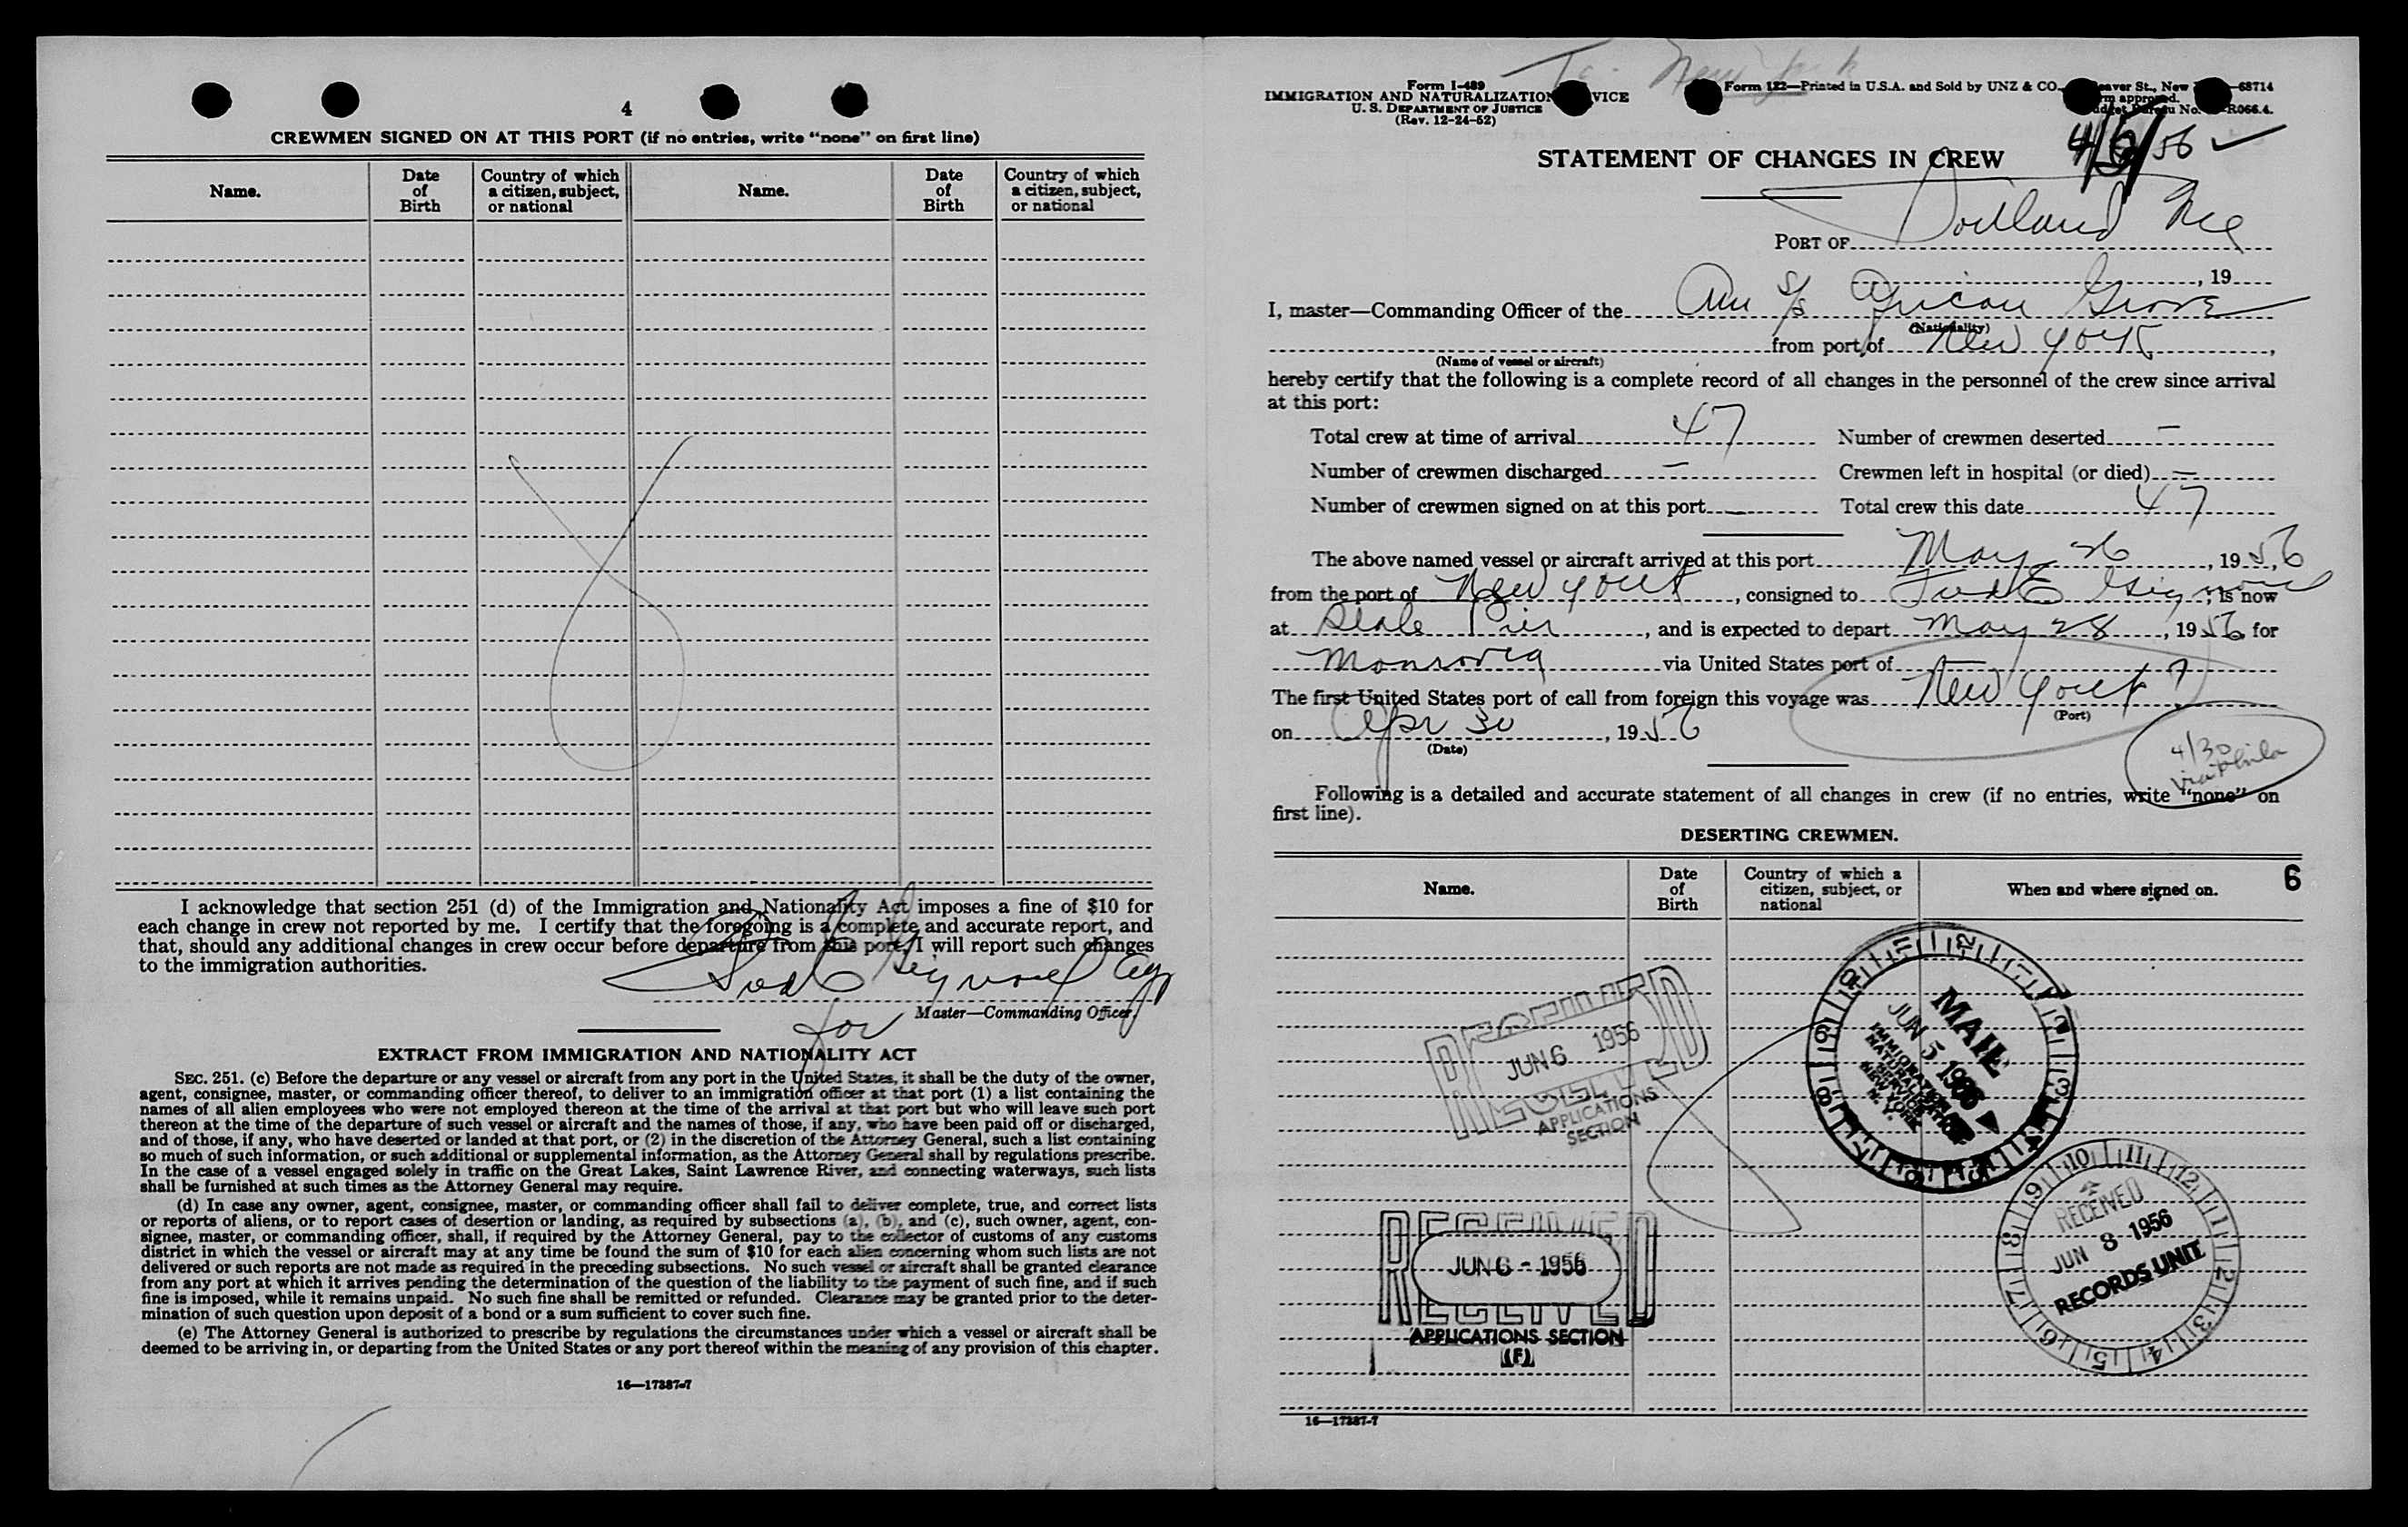 4
CREWMEN SIGNED ON AT THIS PORT (if no entries, write "none" on first line)
Name. Date of Birth Country of which a citizen, subject, or national Name. Date of Birth Country of which a citizen, subject, or national
I acknowledge that section 251 (d) of the Immigration and Nationality Act imposes a fine of $10 for
each change in crew not reported by me. I certify that the foregoing is a complete and accurate report, and
that, should any additional changes in crew occur before departure from this port, I will report such changes
to the immigration authorities.
for
Master—Commanding Officer.
EXTRACT FROM IMMIGRATION AND NATIONALITY ACT
SEC. 251. (c) Before the departure or any vessel or aircraft from any port in the United States, it shall be the duty of the owner,
agent, consignee, master, or commanding officer thereof, to deliver to an immigration officer at that port (1) a list containing the
names of all alien employees who were not employed thereon at the time of the arrival at that port but who will leave such port
thereon at the time of the departure of such vessel or aircraft and the names of those, if any, who have been paid off or discharged,
and of those, if any, who have deserted or landed at that port, or (2) in the discretion of the Attorney General, such a list containing
so much of such information, or such additional or supplemental information, as the Attorney General shall by regulations prescribe.
In the case of a vessel engaged solely in traffic on the Great Lakes, Saint Lawrence River, and connecting waterways, such lists
shall be furnished at such times as the Attorney General may require.
(d) In case any owner, agent, consignee, master, or commanding officer shall fail to deliver complete, true, and correct lists
or reports of aliens, or to report cases of desertion or landing, as required by subsections (a), (b), and (c), such owner, agent, con-
signee, master, or commanding officer, shall, if required by the Attorney General, pay to the collector of customs of any customs
district in which the vessel or aircraft may at any time be found the sum of $10 for each alien concerning whom such lists are not
delivered or such reports are not made as required in the preceding subsections. No such vessel or aircraft shall be granted clearance
from any port at which it arrives pending the determination of the question of the liability to the payment of such fine, and if such
fine is imposed, while it remains unpaid. No such fine shall be remitted or refunded. Clearance may be granted prior to the deter-
mination of such question upon deposit of a bond or a sum sufficient to cover such fine.
(e) The Attorney General is authorized to prescribe by regulations the circumstances under which a vessel or aircraft shall be
deemed to be arriving in, or departing from the United States or any port thereof within the meaning of any provision of this chapter.
16—17387-7
To New York
Form I-489
IMMIGRATION AND NATURALIZATION VICE
U. S. DEPARTMENT OF JUSTICE
(Rev. 12-24-52)
Form 122—Printed in U.S.A. and Sold by UNZ & CO., eaver St., New —68714
rm approved.
No. R066.4.
STATEMENT OF CHANGES IN CREW
PORT OF Portland Me
, 19
I, master—Commanding Officer of the Am S/S African Grove
(Nationality)
from port of New York,
(Name of vessel or aircraft)
hereby certify that the following is a complete record of all changes in the personnel of the crew since arrival
at this port:
Total crew at time of arrival 47 Number of crewmen deserted —
Number of crewmen discharged — Crewmen left in hospital (or died) —
Number of crewmen signed on at this port — Total crew this date 47
The above named vessel or aircraft arrived at this port May 26, 1956
from the port of New York, consigned to, is now
at State Pier, and is expected to depart May 28, 1956 for
Monrovia via United States port of —
The first United States port of call from foreign this voyage was New York
(Port)
on Apr 30, 1956
(Date)
4/30
via Phila
Following is a detailed and accurate statement of all changes in crew (if no entries, write "none" on
first line).
DESERTING CREWMEN.
Name. Date of Birth Country of which a citizen, subject, or national When and where signed on. 6
RECEIVED
JUN 6 1956
APPLICATIONS
SECTION
MAIL
JUN 5 1956
IMMIGRATION
NATURALIZATION
SERVICE
NEW YORK
N. Y.
RECEIVED
JUN 6 - 1956
APPLICATIONS SECTION
(F)
RECEIVED
JUN 8 1956
RECORDS UNIT
16—17387-7